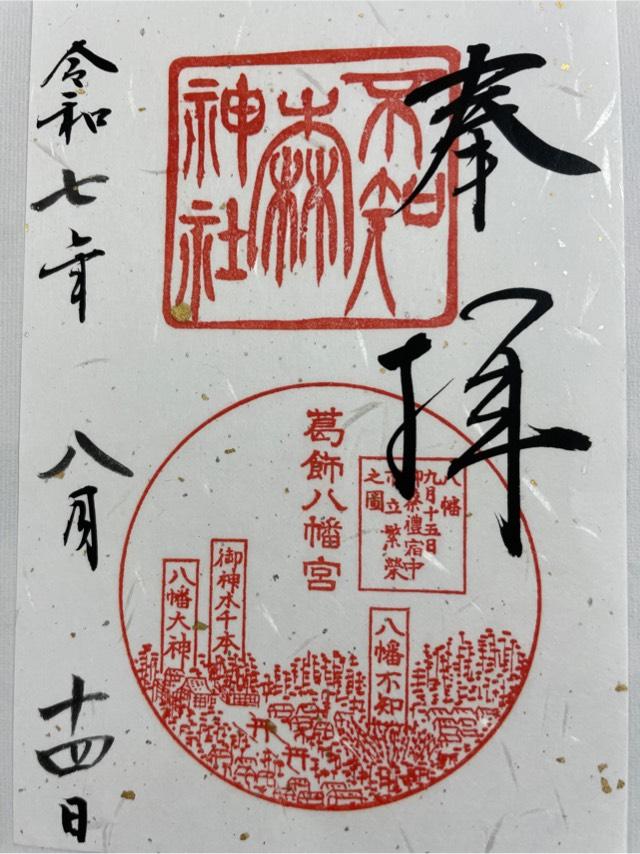 奉拝
不知
森
神社
葛飾八幡宮
八幡
九月十五日
御祭禮宿中
市立繁榮
之圖
八幡不知
御神木千本
八幡大神
令和七年 八月 十四日